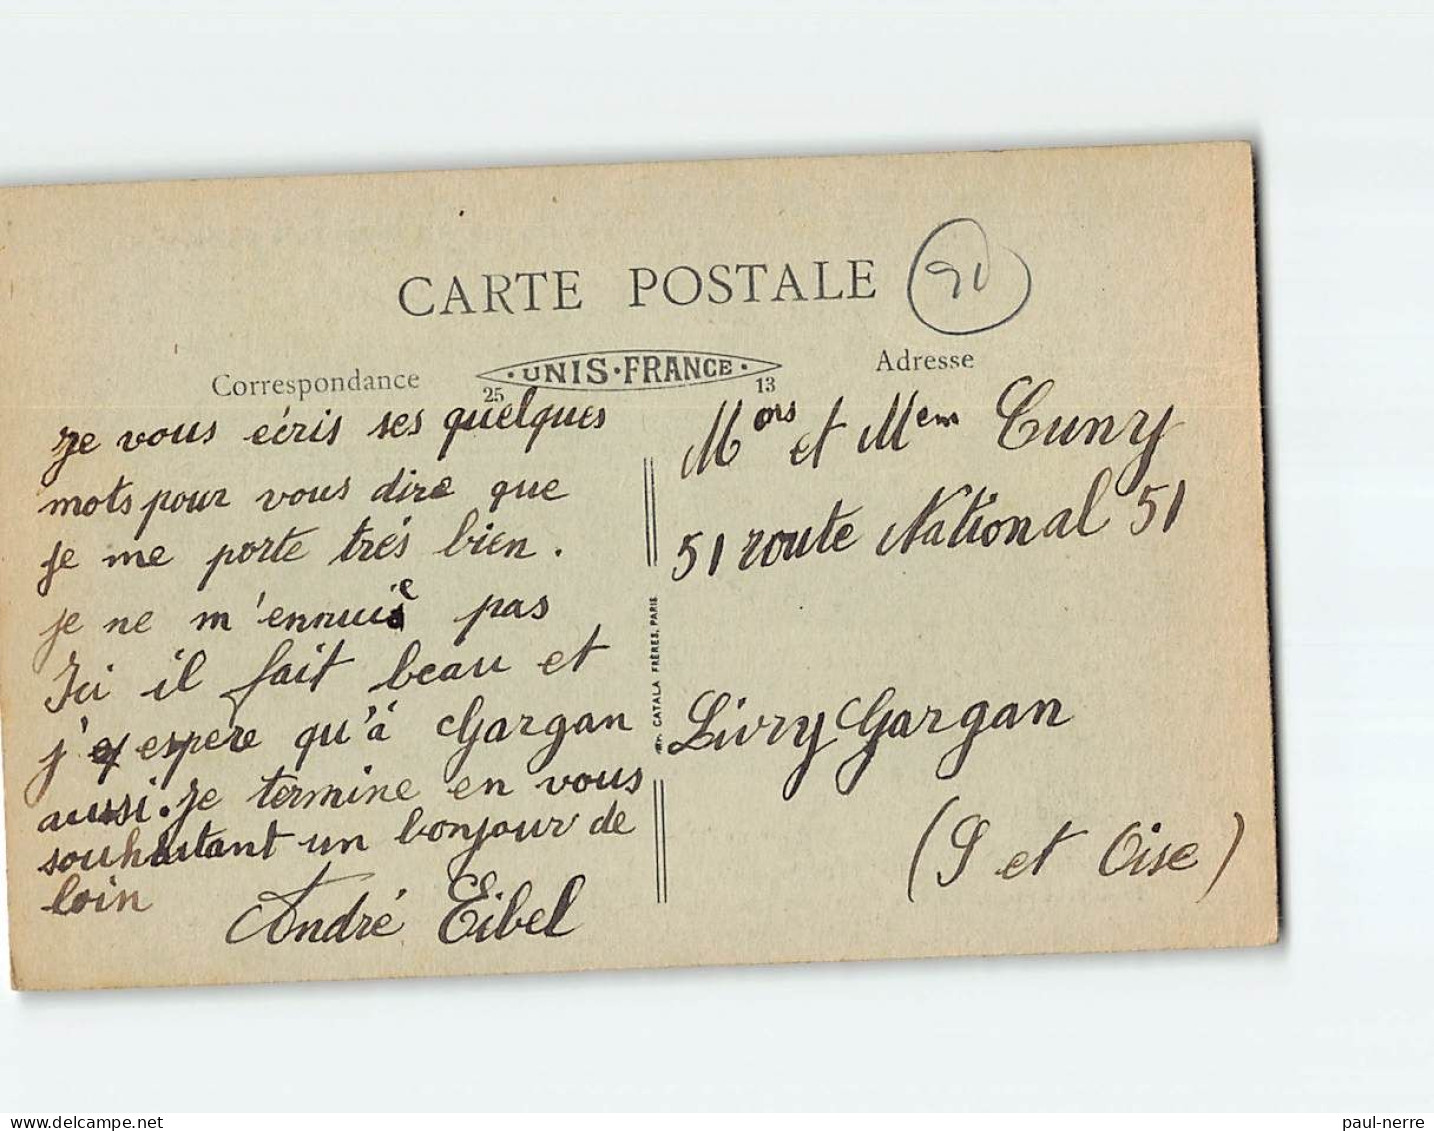 CARTE POSTALE
90
Correspondance
UNIS·FRANCE·
25
13
Adresse
je vous écris ses quelques
mots pour vous dire que
je me porte trés bien.
je ne m'ennuie pas
Ici il fait beau et
j'espere qu'à Gargan
aussi. je termine en vous
souhaitant un bonjour de
loin
André Eibel
CATALA FRÈRES, PARIS
Mors et Mem Cuny
51 route National 51
Livry Gargan
(S et Oise)
paul-nerre